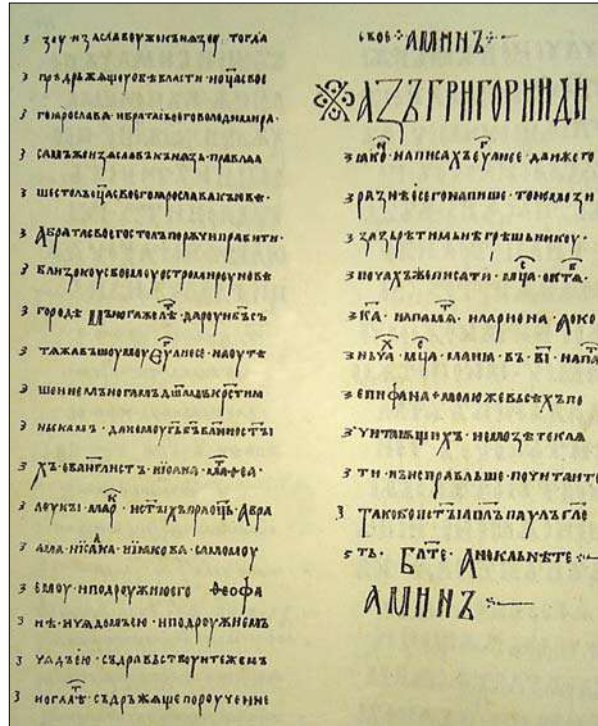 зоу · изѧславоу же кънѧзоу тогда
прѣдрьжѧщоу обѣ власти · и оц҃а своѥ
го ꙗрослава · и брата своѥго володимира ·
самъ же изѧславъ кънѧзь · правлѧа
ше столъ оц҃а своѥго ꙗрослава кыѥвѣ ·
А брата своѥго столъ порѫчи правити ·
близокоу своѥмоу остромироу новѣ
городѣ · мънога же лѣⷮ · дароуи б҃ъ съ
тѧжавъшоумоу еуⷢ҇лиѥ се · на оутѣ
шениѥ мъногамъ дш҃амъ крⷭ҇тиꙗ
ньскамъ · даи ѥмоу г҃ь б҃ъ бл҃ниѥ ст҃ы
хъ · еванг҃листъ · иоана · маⷮѳеа ·
лоукы · марⷦ · и ст҃ыхъ праоц҃ь · Авра
ама · и иса́ка · и иꙗкова · самомоу
ѥмоу · и подроужию ѥго ѳеофа
нѣ · и чѧдомъ ѥю · и подроужиѥмъ
чѧдъ ѥю · съдравьствоуите же мъ
нога лѣⷮ · съдрьжѧще пороучениѥ
своѥ · АМИНЪ
АЗЪ ГРИГОРИИ ДИ
ꙗкоⷩ · написахъ еуⷢ҇лиѥ се · да иже го
разнѣе сего напише · то не мози
зазьрѣти мьнѣ грѣшьникоу ·
почахъ же писати · мⷭ҇ца · окⷮѧ ·
к҃а · на памⷮѧ · илариона · А око
ньчаⷯ · мⷭ҇ца · маиꙗ · въ · в҃і · на паⷨ
епифана · молю же вьсѣхъ по
читаѭщихъ · не мозѣте клѧ
ти · нъ исправльше · почитаите
Тако бо и ст҃ыи ап҃лъ паулъ гл҃е
ть · Бл҃те · А не кльнѣте
АМИНЪ